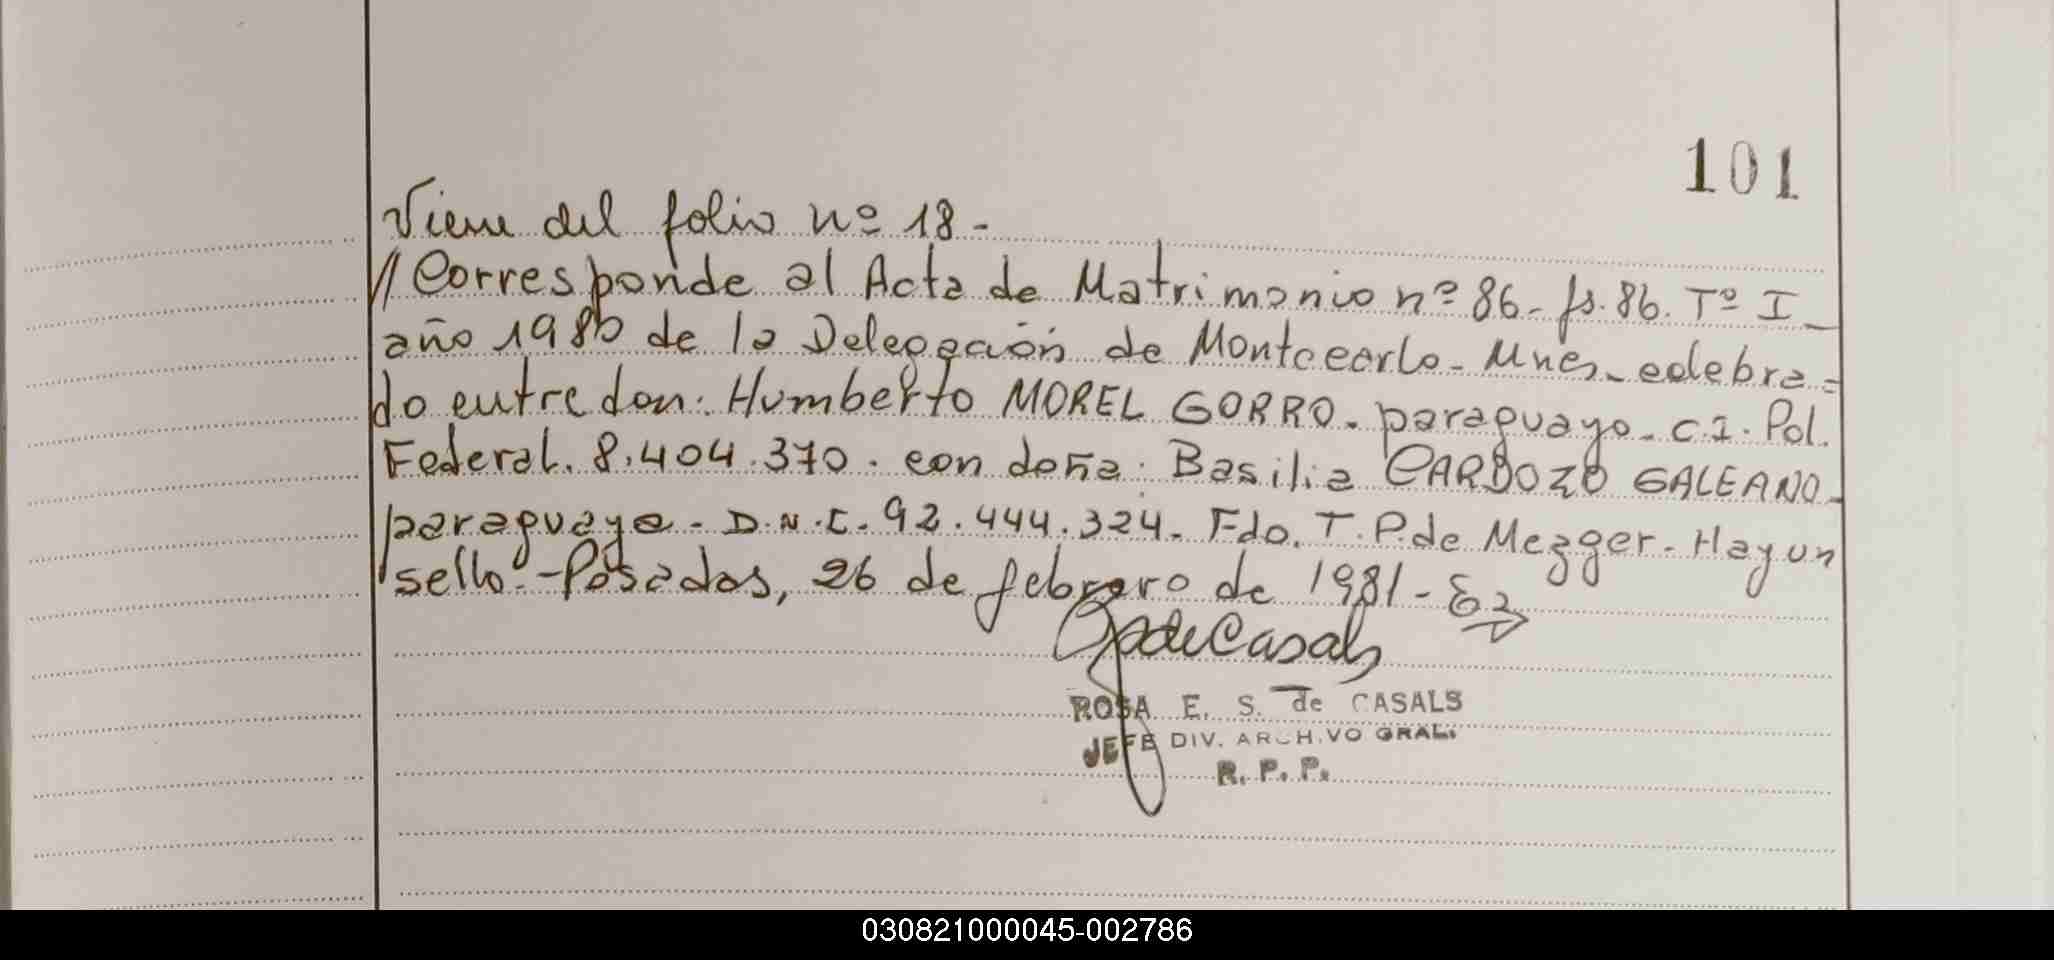 101
Viene del folio nº 18 -
// Corresponde al Acta de Matrimonio nº 86 - fs. 86. Tº I -
año 1980 de la Delegación de Montecarlo - Mnes - celebra =
do entre don: Humberto MOREL GORRO. paraguayo - C.I. Pol.
Federal. 8.404.370. con doña: Basilia CARDOZO GALEANO -
paraguaya - D.N.I. 92.444.324. Fdo. T. P. de Mezger - Hay un
sello - Posadas, 26 de febrero de 1981 -
de Casals
ROSA E. S. de CASALS
JEFE DIV. ARCHIVO GRAL.
R. P. P.
030821000045-002786